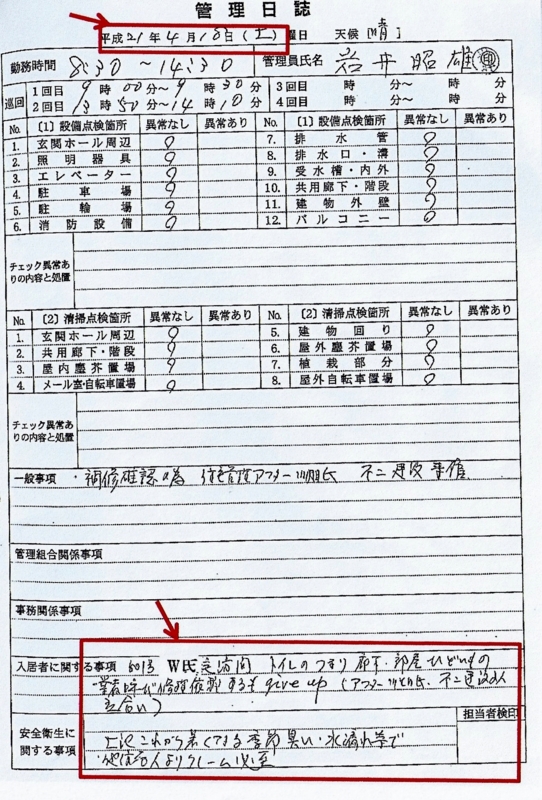 管理日誌
平成21年4月18日(土)曜日 天候[晴]
勤務時間 8:30~14:30 管理員氏名 岩井昭雄
巡回 1回目 9時00分~9時30分 3回目 時 分~ 時 分
2回目 13時50分~14時10分 4回目 時 分~ 時 分
No. [1]設備点検箇所 異常なし 異常あり No. [1]設備点検箇所 異常なし 異常あり
1. 玄関ホール周辺 7. 排水管
2. 照明器具 8. 排水口・溝
3. エレベーター 9. 受水槽・内外
4. 駐車場 10. 共用廊下・階段
5. 駐輪場 11. 建物外壁
6. 消防設備 12. バルコニー
チェック異常ありの内容と処置
No. [2]清掃点検箇所 異常なし 異常あり No. [2]清掃点検箇所 異常なし 異常あり
1. 玄関ホール周辺 5. 建物回り
2. 共用廊下・階段 6. 屋外塵芥置場
3. 屋内塵芥置場 7. 植栽部分
4. メール室・自転車置場 8. 屋外自転車置場
チェック異常ありの内容と処置
一般事項 ・補修確認の為 アフター 不二建設
管理組合関係事項
事務関係事項
入居者に関する事項 W氏 トイレのつまり 部屋ひどいもの
修理依頼するも give up (アフター 氏、不二建設
立合い)
担当者検印
安全衛生に関する事項 上記これから暑くなる季節臭い・水漏れ等で
他住人よりクレーム必至